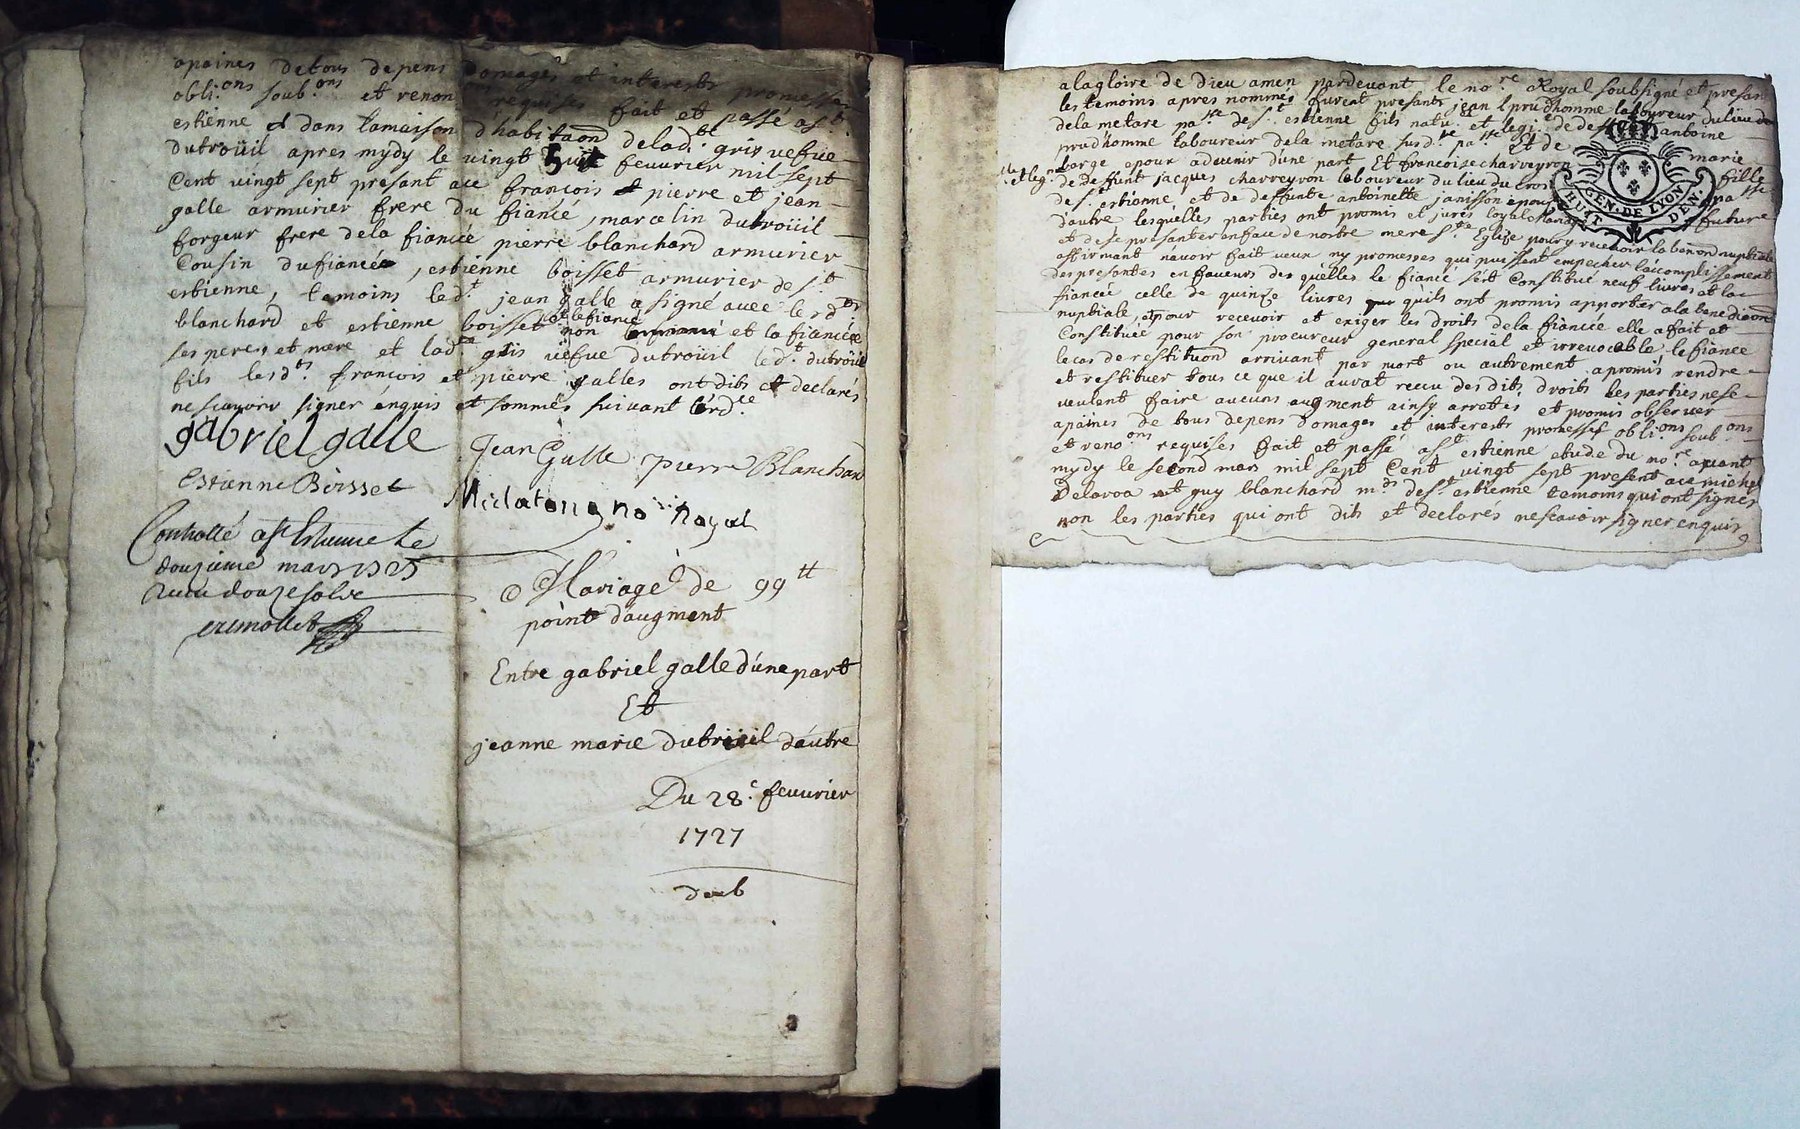 apaines de tous depens domages et interests promesses
obli.ons soub.ons et renon.ons requises fait et passé a st.
estienne et dans la maison d'habitaon de lad.te gris vefve
dutroüil apres mydy le vingt huit fevvrier mil sept
Cent vingt sept presant ace françois et pierre et jean
galle armurier frere du fiancé, marcelin dutroüil
forgeur frere dela fiancée pierre blanchard armurier
Cousin du fiancée, estienne boisset armurier de s.t
estienne, temoins led.t jean galle a signé avec lesd.ts
blanchard et estienne boisset et le fiancé non et la fiancée
ses pere, et mere et lad.te gris vefve dutroüil led.t dutroüil
fils lesd.ts françois et pierre galles ont dits et declarés
nescavoir signer enquis et sommés suivant l'ord.ce
gabriel galle Jean Galle pierre Blanchard
Estienne Boisset
no Royal
Controllé a st Estienne le
douzieme mars 1727
Receu douze sols
Mariage de 99tt
point d'augment
Entre gabriel galle d'une part
Et
jeanne marie dutroüil d'autre
Du 28.e fevvrier
1727
doub
ala gloire de Dieu amen pardevant le no.re Royal soubsigné et presant
les temoins apres nommés furent presants jean prudhomme laboureur du lieu de
dela metare pa.sse de s.t estienne fils natu.el et legi.e de antoine
prudhomme laboureur dela metare susd.te pa.sse et de marie
barge epour advenir d'une part Et francoise charveyron fille
et leg.me de deffunt jacques charveyron laboureur du lieu du cros pa.sse
de s.t estienne, et de deffunte antoinette janisson future
d'autre lesquelles parties ont promis et jurés loyal Mariage
et de se presanter en face de nostre mere s.te Eglize pour y recevoir la benon nuptiale
affirmant navoir fait veux ny promesses qui puissent empecher l'acomplissement
des presentes en faveurs des quelles le fiancé s'est Constitué neuf livres et la
fiancée celle de quinze livres quils ont promis apporter ala benediction
nuptiale, et pour recevoir et exiger les droits dela fiancée elle a fait et
Constitué pour son procureur general special et irrevocable le fiancé
le cas de restituond arrivant par mort ou autrement a promis rendre
et restituer tous ce que il aurat receu desdits droits les parties ne se
veulent faire aucuns augment ainsy arretés et promis observer
apaines de tous depens domages et interests promesses obli.ons soub.ons
et reno.ons requises fait et passé a s.t estienne etude du no.re avant
mydy le second mars mil sept Cent vingt sept present ace michel
Delaroa et guy blanchard m.ds de s.t estienne temoins qui ont signés
non les parties qui ont dits et declarés nescavoir signer enquis
GEN. DE LYON
HUIT DEN.